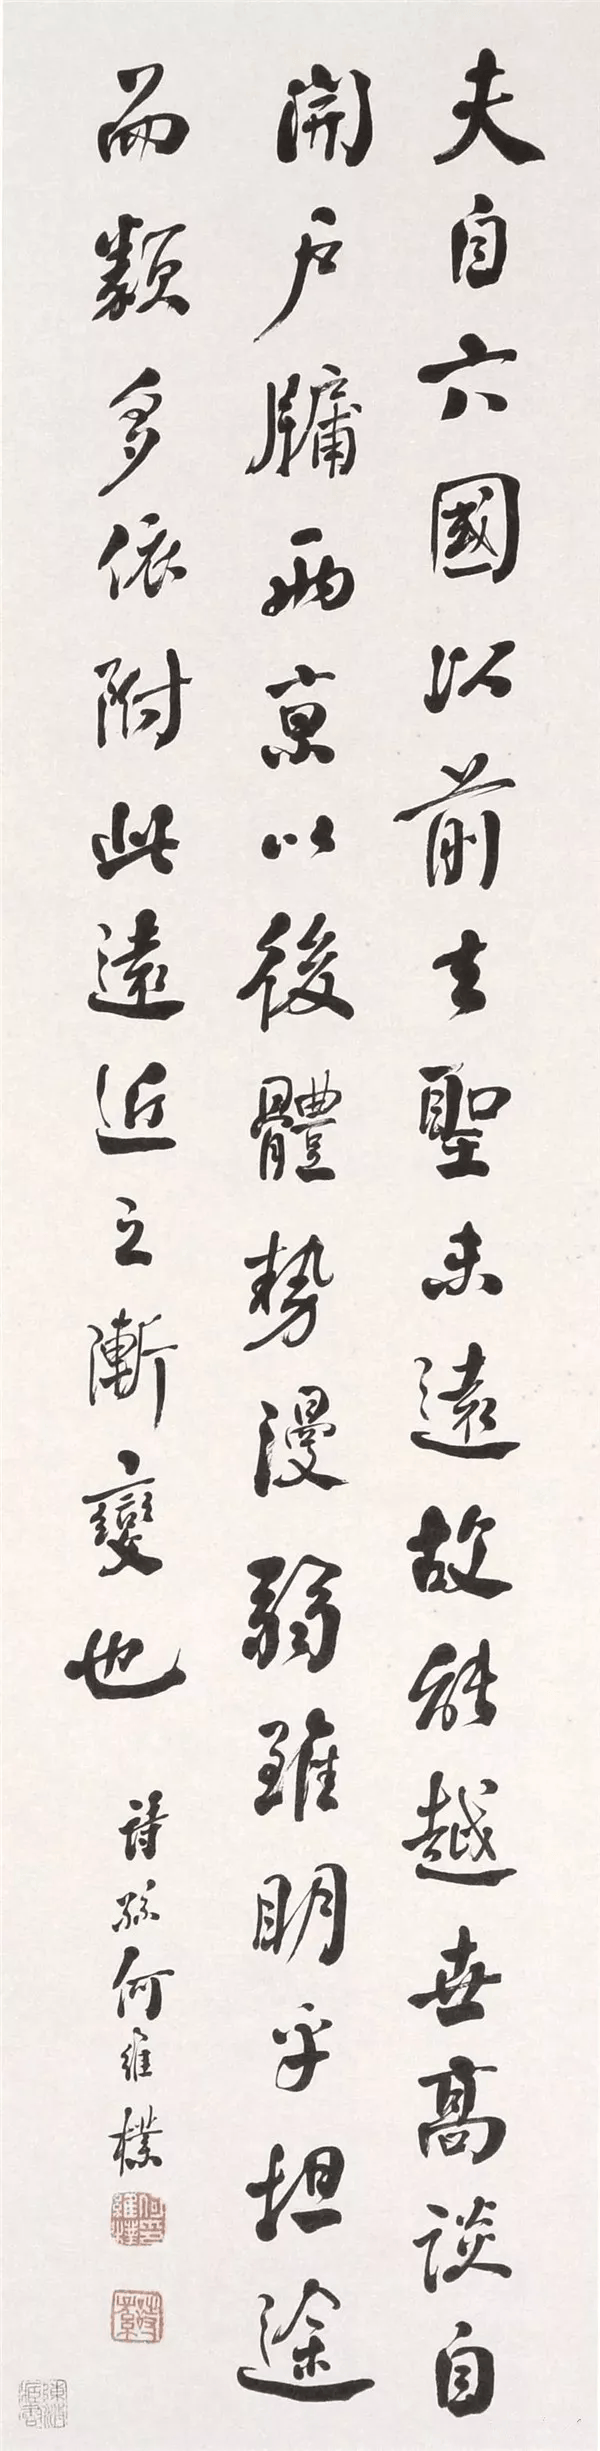 夫自六國以前去聖未遠故能越世高談自
開户牖兩京以後體勢漫弱雖明乎坦途
而類多依附此遠近之漸變也
詩孫何維樸
何維樸印
詩孫